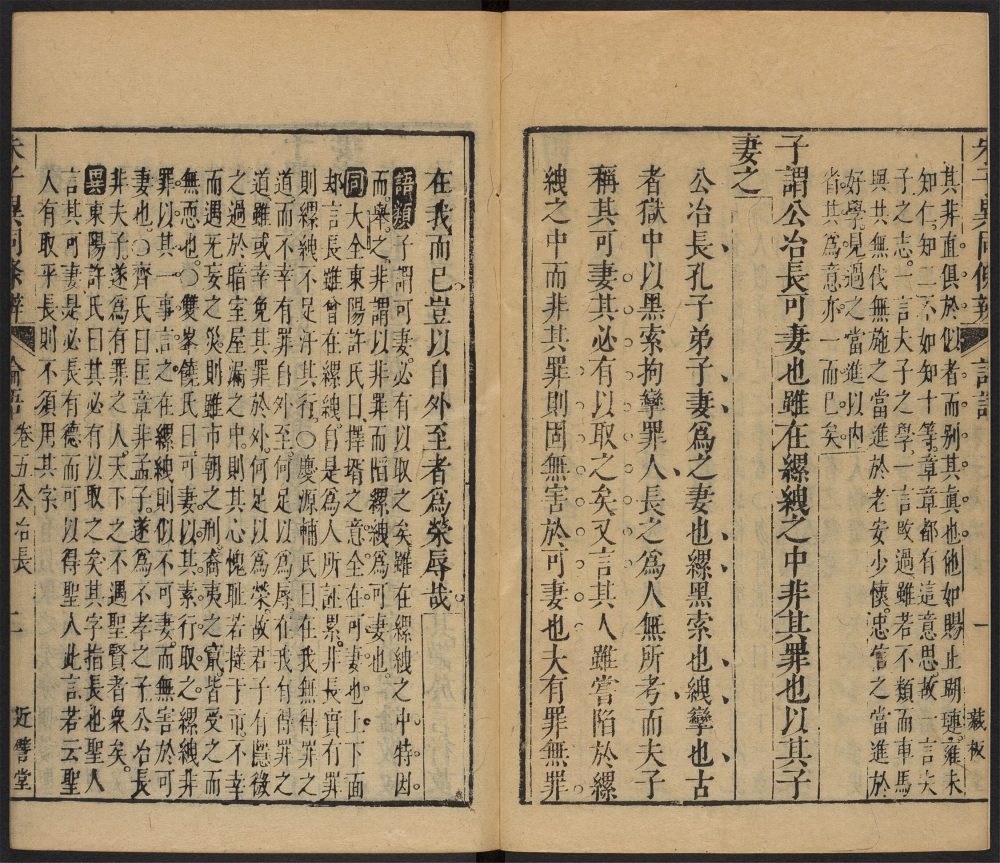 朱子異同條辨
論語
一
藏板
其非直俱於似者而别其真也他如賜止瑚璉雍未
知仁知二不如知十等章章都有這意思故一言夫
子之志一言大子之學一言改過雖若不類而車馬
與共無伐無施之當進於老安少懷忠信之當進於
好學見過之當進以内
省其為意亦一而已矣
子謂公冶長可妻也雖在縲絏之中非其罪也以其子
妻之
公冶長孔子弟子妻爲之妻也縲黑索也絏攣也古
者獄中以黑索拘攣罪人長之爲人無所考而夫子
稱其可妻其必有以取之矣又言其人雖嘗陷於縲
絏之中而非其罪則固無害於可妻也夫有罪無罪
在我而已豈以自外至者爲榮辱哉
語類子謂可妻必有以取之矣雖在縲絏之中特因
而舉之非謂以非罪而陷縲絏爲可妻也
同大全東陽許氏曰擇壻之意全在可妻也上下面
却言長雖曾在縲絏自是為人所誣累非長實有罪
則縲絏不足汙其行○慶源輔氏曰在我無得罪之
道而不幸有罪自外至何足以為辱在我有得罪之
道雖或幸免其罪於外何足以為榮故君子有隱微
之過於暗室屋漏之中則其心愧耻若撻于市不幸
而遇无妄之災則雖市朝之刑裔夷之竄皆受之而
無恧也○雙峯饒氏曰可妻以其素行取之縲絏非
罪以其一事言之在縲絏則似不可妻而無害於可
妻也○齊氏曰匡章非孟子遂為不孝之子公冶長
非夫子遂為有罪之人天下之不遇聖賢者衆矣
異東陽許氏曰其必有以取之矣其字指長也聖人
言其可妻是必長有德而可以得聖人此言若云聖
人有取乎長則不須用其字
朱子異同條辨
論語卷五公冶長
二
近譬堂